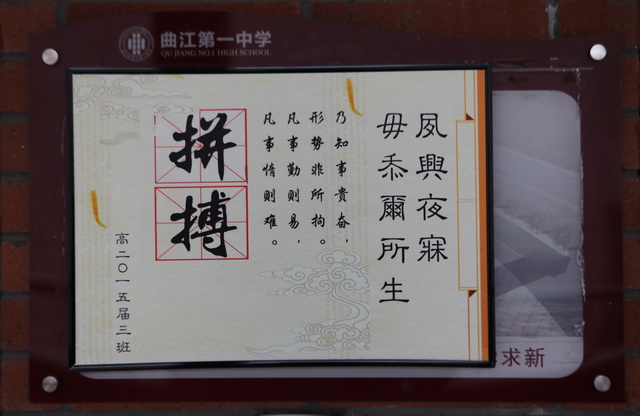 曲江第一中学
QU JIANG NO.1 HIGH SCHOOL
夙興夜寐
毋忝爾所生
乃知事貴奋，
形势非所拘。
凡事勤则易，
凡事惰则难。
拼搏
高二〇一五届三班
求新